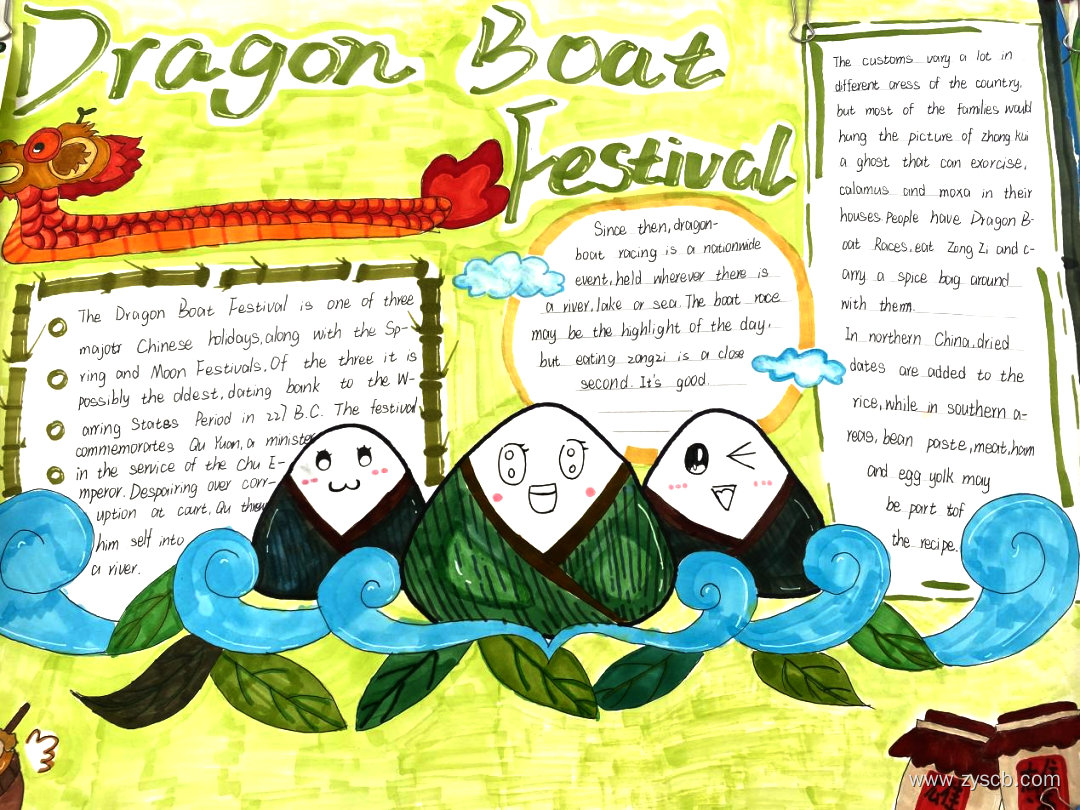 Dragon Boat
Festival
The Dragon Boat Festival is one of three
majotr Chinese holidays, along with the Sp-
ring and Moon Festivals. Of the three it is
possibly the oldest, dating bank to the W-
arring States Period in 227 B.C. The festival
commemorates Qu Yuan, a minister
in the service of the Chu E-
mperor. Despairing over corr-
uption at court, Qu threw
him self into
a river.
Since then, dragon-
boat racing is a nationwide
event, held wherever there is
a river, lake or sea. The boat race
may be the highlight of the day,
but eating zongzi is a close
second. It's good.
The customs vary a lot in
different aress of the country,
but most of the families would
hung the picture of zhong kui
a ghost that can exorcise,
calamus and moxa in their
houses. People have Dragon B-
oat Races, eat Zong Zi and c-
arry a spice bag around
with them.
In northern China, dried
dates are added to the
rice, while in southern a-
reas, bean paste, meat, ham
and egg yolk may
be part tof
the recipe.
www.zyscb.com